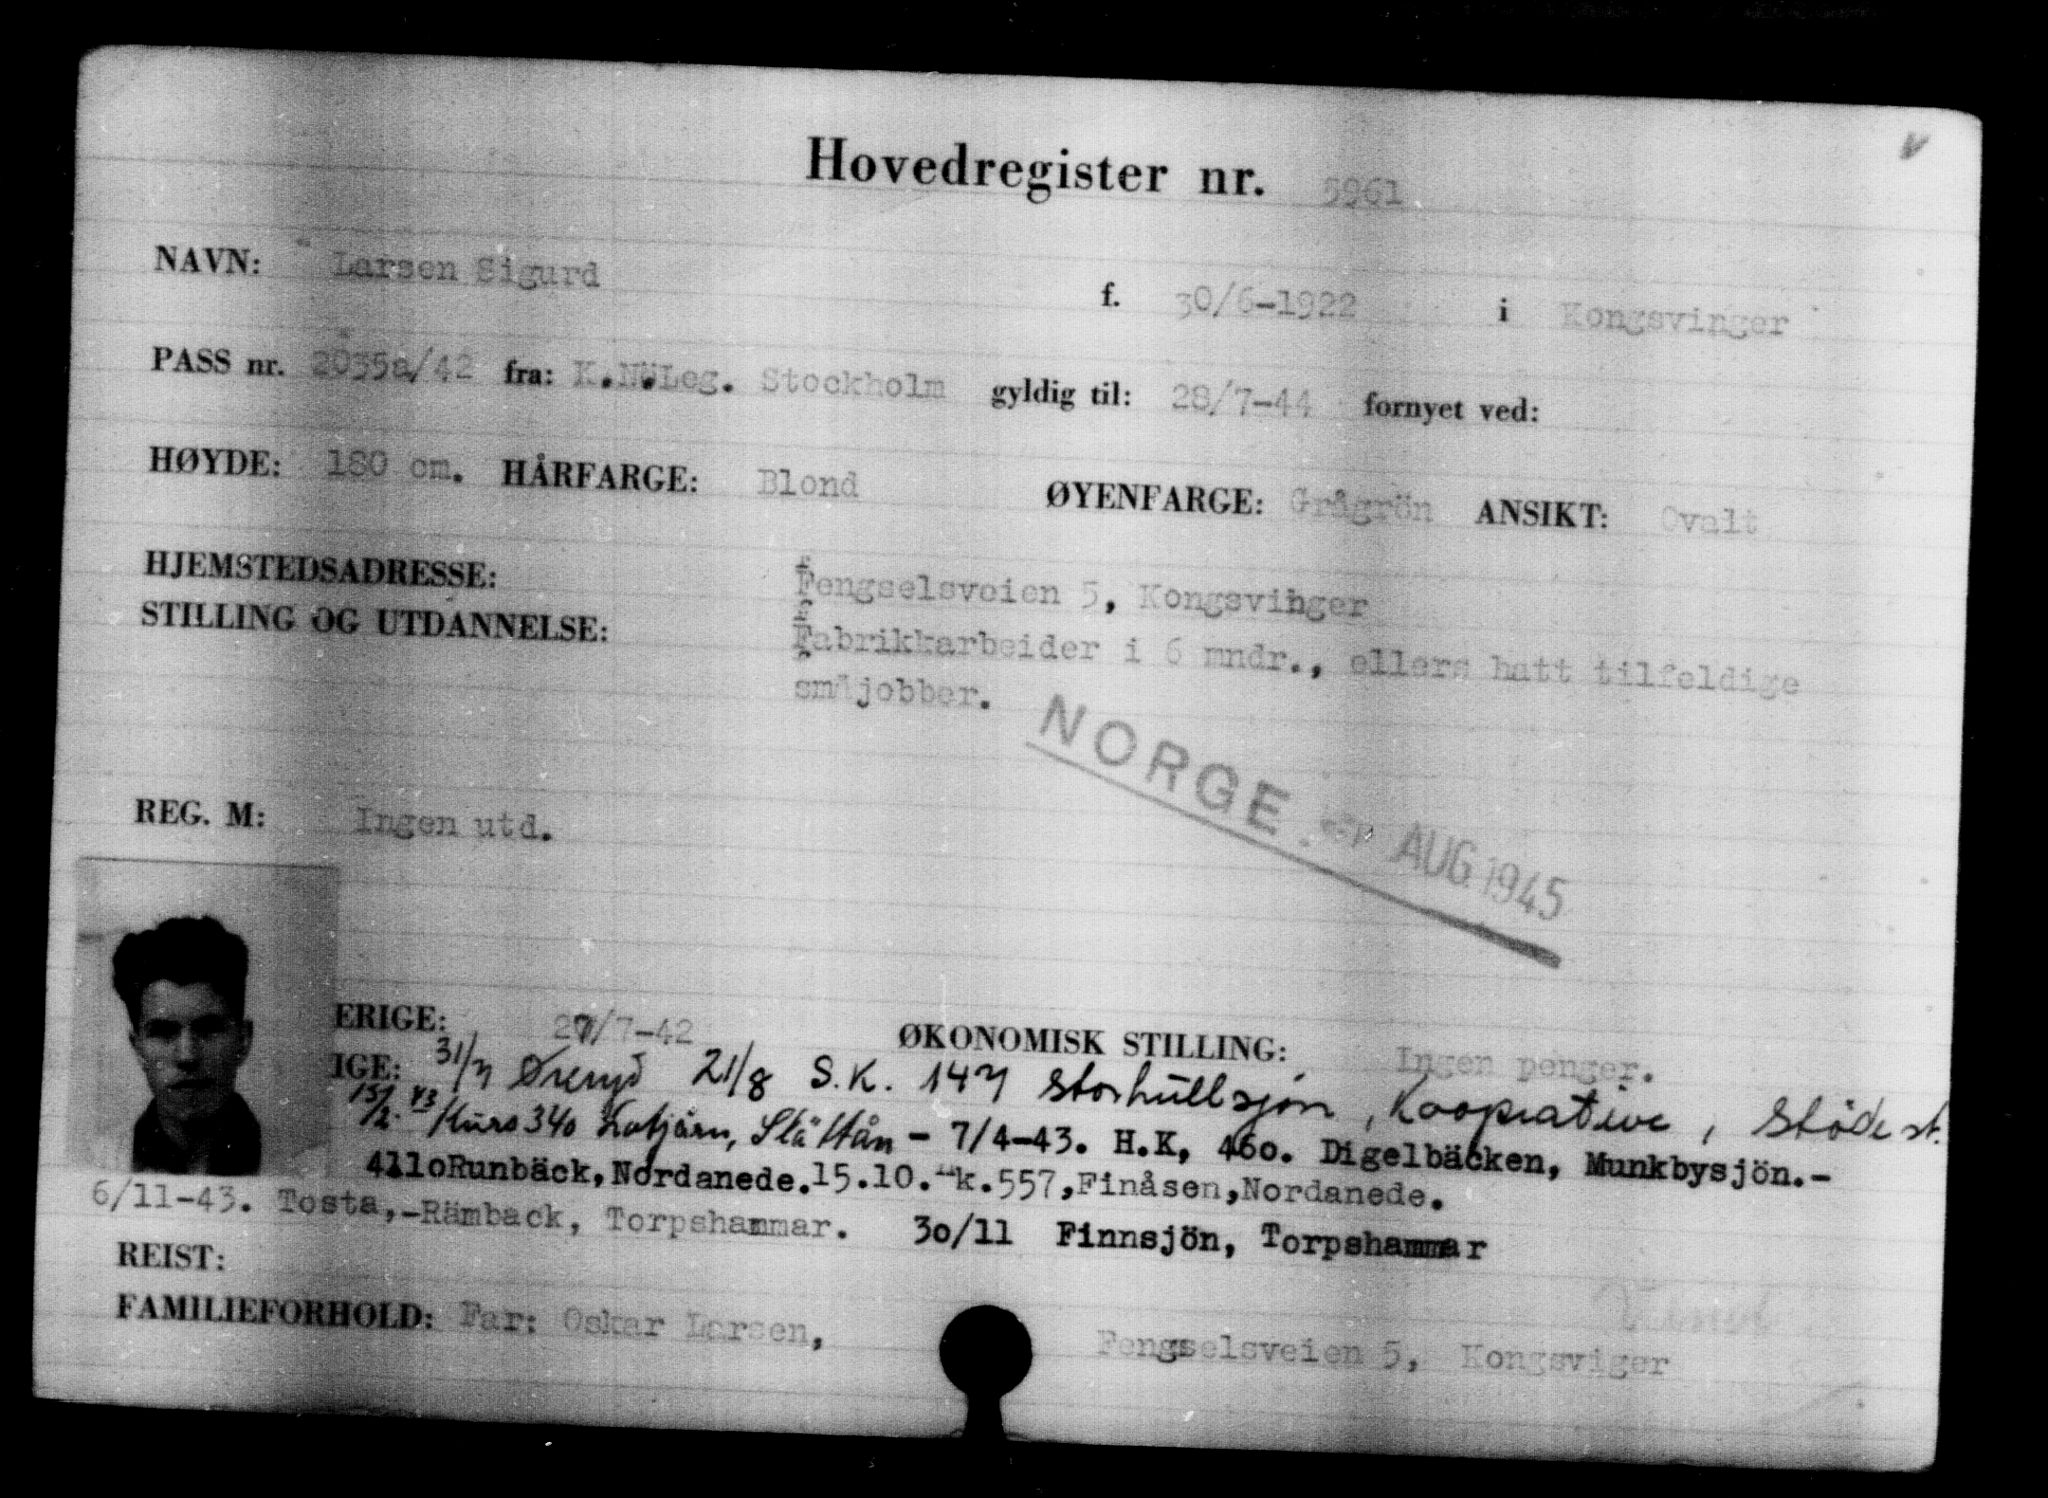 Hovedregister nr. 5961
NAVN: Larsen Sigurd f. 30/6-1922 i Kongsvinger
PASS nr. 2035a/42 fra: K.N.Leg. Stockholm gyldig til: 28/7-44 fornyet ved:
HØYDE: 180 cm. HÅRFARGE: Blond ØYENFARGE: Grågrön ANSIKT: Ovalt
HJEMSTEDSADRESSE: Fengselsveien 5, Kongsvinger
STILLING OG UTDANNELSE: Fabrikkarbeider i 6 mndr., ellers hatt tilfeldige
småjobber.
NORGE. AUG 1945
REG. M: Ingen utd.
ERIGE: 27/7-42 ØKONOMISK STILLING: Ingen penger.
IGE: 31/7 Øreryd 21/8 S.K. 147 Storhullsjön, Kooperative, Stöde st.
15/2. 43 Kurs 340 Slättån - 7/4-43. H.K, 460. Digelbäcken, Munkbysjön.-
411oRunbäck, Nordanede. 15.10. k.557, Finåsen, Nordanede.
6/11-43. Tosta,-Rämback, Torpshammar. 30/11 Finnsjön, Torpshammar
REIST:
FAMILIEFORHOLD: Far: Oskar Larsen, Fengselsveien 5, Kongsviger